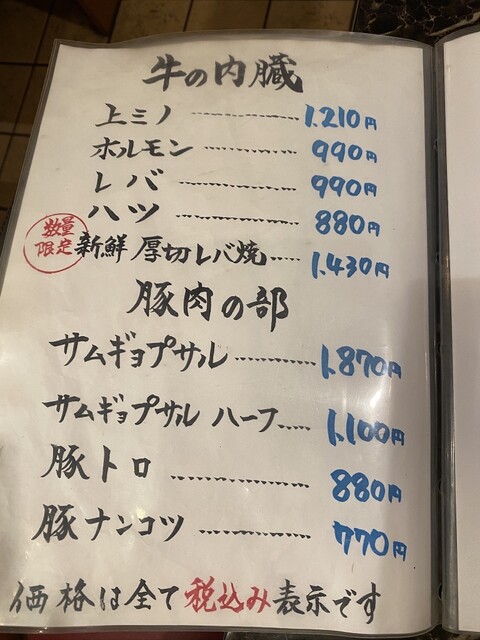 牛の内臓
上ミノ ............ 1,210円
ホルモン ............ 990円
レバ ............ 990円
ハツ ............ 880円
数量限定 新鮮 厚切レバ焼 ..... 1,430円
豚肉の部
サムギョプサル ......... 1,870円
サムギョプサル ハーフ ..... 1,100円
豚トロ ............ 880円
豚ナンコツ ............ 770円
価格は全て税込み表示です